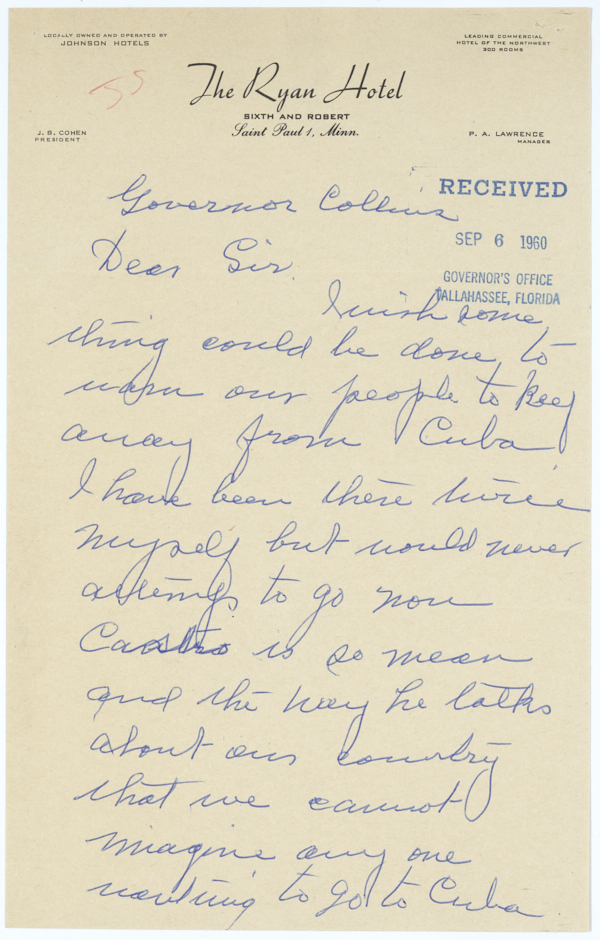 LOCALLY OWNED AND OPERATED BY
JOHNSON HOTELS
LEADING COMMERCIAL
HOTEL OF THE NORTHWEST
300 ROOMS
55
The Ryan Hotel
SIXTH AND ROBERT
Saint Paul 1, Minn.
J. B. COHEN
PRESIDENT
P. A. LAWRENCE
MANAGER
RECEIVED
SEP 6 1960
GOVERNOR'S OFFICE
TALLAHASSEE, FLORIDA
Governor Collins
Dear Sir.
I wish some
thing could be done to
warn our people to keep
away from Cuba
I have been there twice
myself but would never
attempt to go now
Castro is so mean
and the way he talks
about our country
that we cannot
imagine any one
wanting to go to Cuba